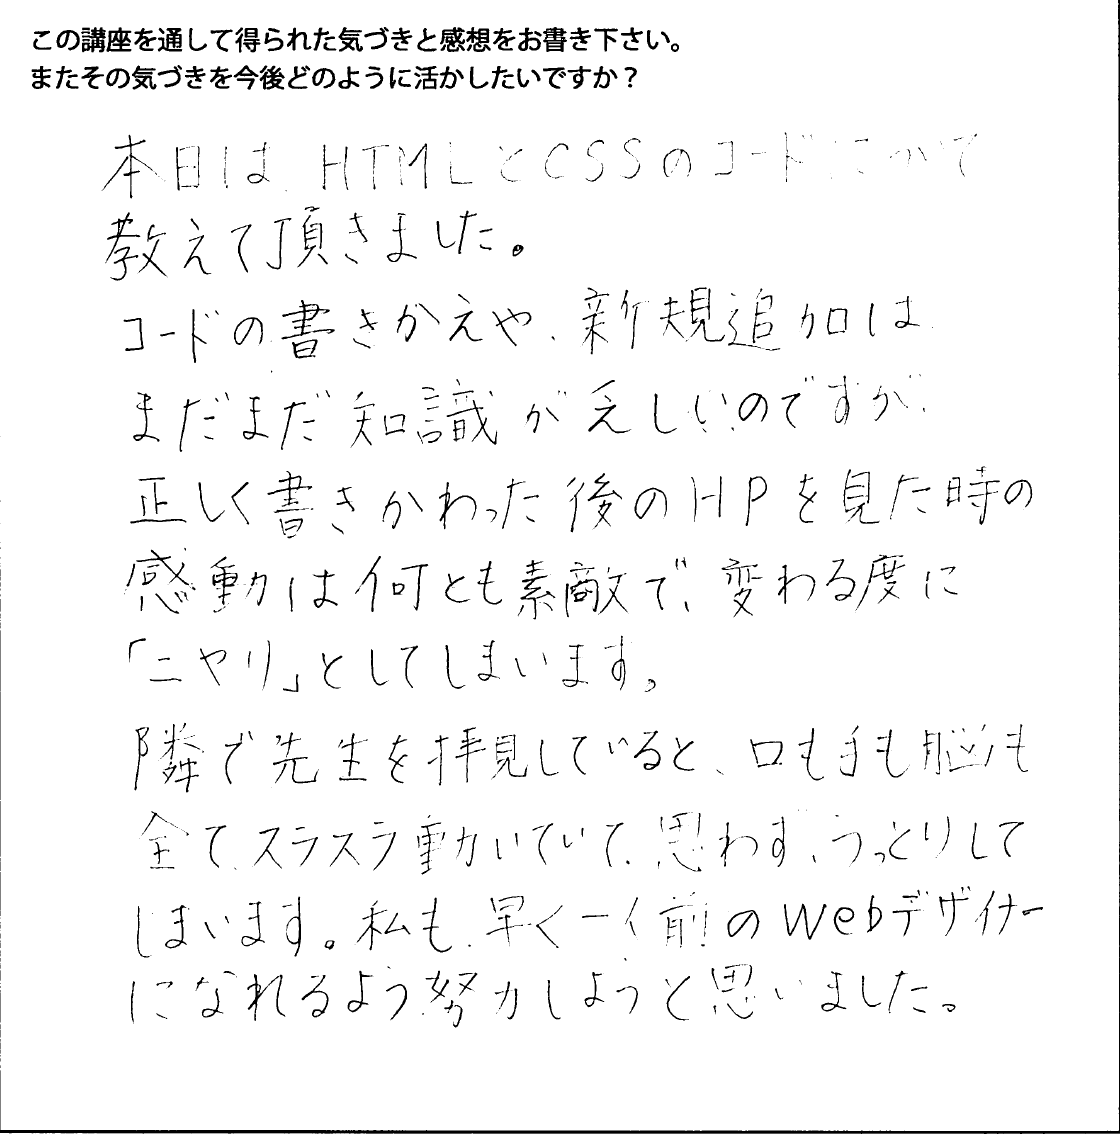 この講座を通して得られた気づきと感想をお書き下さい。
またその気づきを今後どのように活かしたいですか？
本日は、HTMLとCSSのコードについて
教えて頂きました。
コードの書きかえや、新規追加は、
まだまだ知識が乏しいのですが、
正しく書きかわった後のHPを見た時の
感動は何とも素敵で、変わる度に
「ニヤリ」としてしまいます。
隣で先生を拝見していると、口も手も脳も
全て、スラスラ動いていて、思わず、うっとりして
しまいます。私も、早く一人前のWebデザイナー
になれるよう努力しようと思いました。